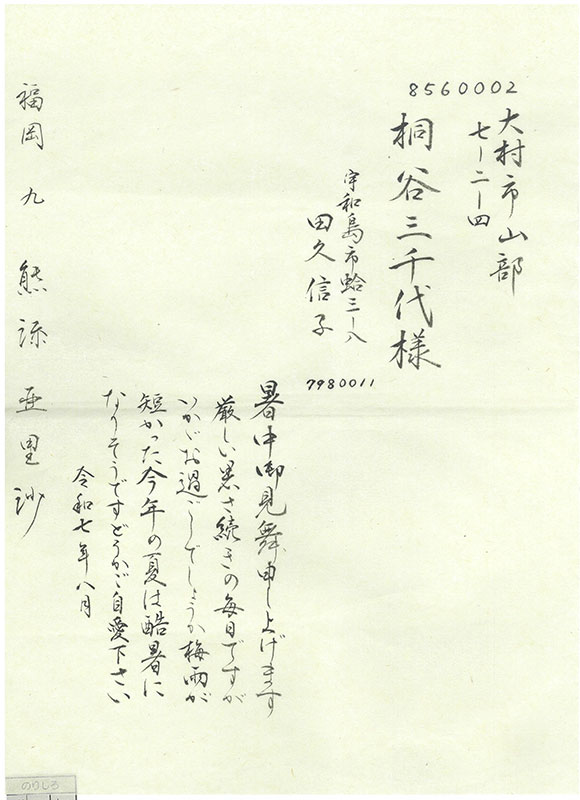 8560002
大村市山部
七ー二ー四
桐谷三千代様
宇和島市蛤三ー八
田久信子
7980011
暑中御見舞申し上げます
厳しい暑さ続きの毎日ですが
いかがお過ごしでしょうか梅雨が
短かった今年の夏は酷暑に
なりそうですどうかご自愛下さい
令和七年八月
福岡 九 熊 亜里沙
のりしろ